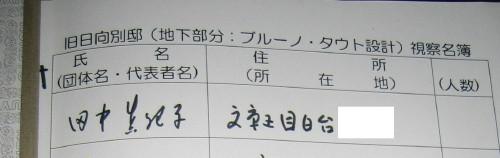 旧日向別邸（地下部分：ブルーノ・タウト設計）視察名簿
氏　　　名
（団体名・代表者名）
住　　　　所
（所　在　地）
（人数）
田中眞紀子
文京区目白台